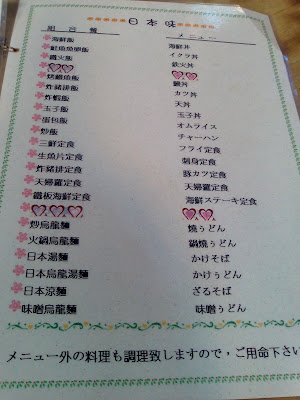 日本味
組合餐 メニュー
海鮮飯 海鮮丼
鮭魚魚卵飯 イクラ丼
鐵火飯 鉄火丼
烤鰻魚飯 鰻丼
炸豬排飯 カツ丼
炸蝦飯 天丼
玉子飯 玉子丼
蛋包飯 オムライス
炒飯 チャーハン
三鮮定食 フライ定食
生魚片定食 刺身定食
炸豬排定食 豚カツ定食
天婦羅定食 天婦羅定食
鐵板海鮮定食 海鮮ステーキ定食
炒烏龍麵 燒うどん
火鍋烏龍麵 鍋燒うどん
日本湯麵 かけそば
日本烏龍湯麵 かけうどん
日本涼麵 ざるそば
味噌烏龍麵 味噌うどん
メニュー外の料理も調理致しますので，ご用命下さい